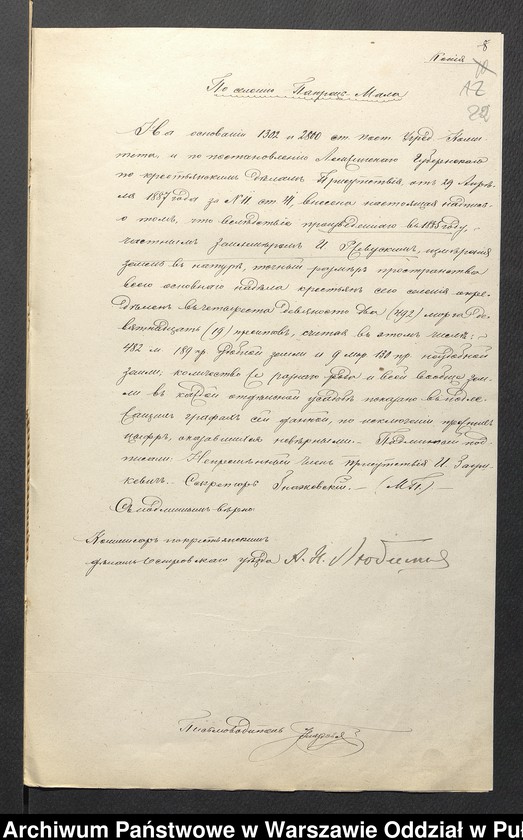 8
Копія
10
AZ
22
По селенію Папроць-Мала
На основаніи 1302 и 2800 ст. пост. Учред. Коми-
тета и по постановленію Ломжинскаго Губернскаго
по крестьянскимъ дѣламъ Присутствія, отъ 29 Апрѣ-
ля 1887 года за № 11 ст. 4, внесена настоящая надпись
о томъ, что вслѣдствіе произведеннаго въ 1885 году,
частнымъ землемѣромъ И. Ржевускимъ, измѣренія
земель въ натурѣ, точный размѣръ пространства
всего основнаго надѣла крестьянъ сего селенія опре-
дѣленъ въ четыреста девяносто два (492) морга де-
вятнадцать (19) прентовъ, считая въ этомъ числѣ:
482 м. 189 пр. удобной земли и 9 мор. 130 пр. неудобной
земли; количество же разнаго рода и всей вообще зем-
ли въ каждой отдѣльной усадьбѣ показано въ подле-
жащихъ графахъ сей данной, по исключеніи прежнихъ
цифръ, оказавшихся невѣрными. Подлинную под-
писали: Непремѣнный Членъ Присутствія И.
Секретарь (М.П.)
Съ подлиннымъ вѣрно:
Коммисаръ по крестьянскимъ
дѣламъ Островскаго уѣзда А. Н.
Письмоводитель
Archiwum Państwowe w Warszawie Oddział w Puł